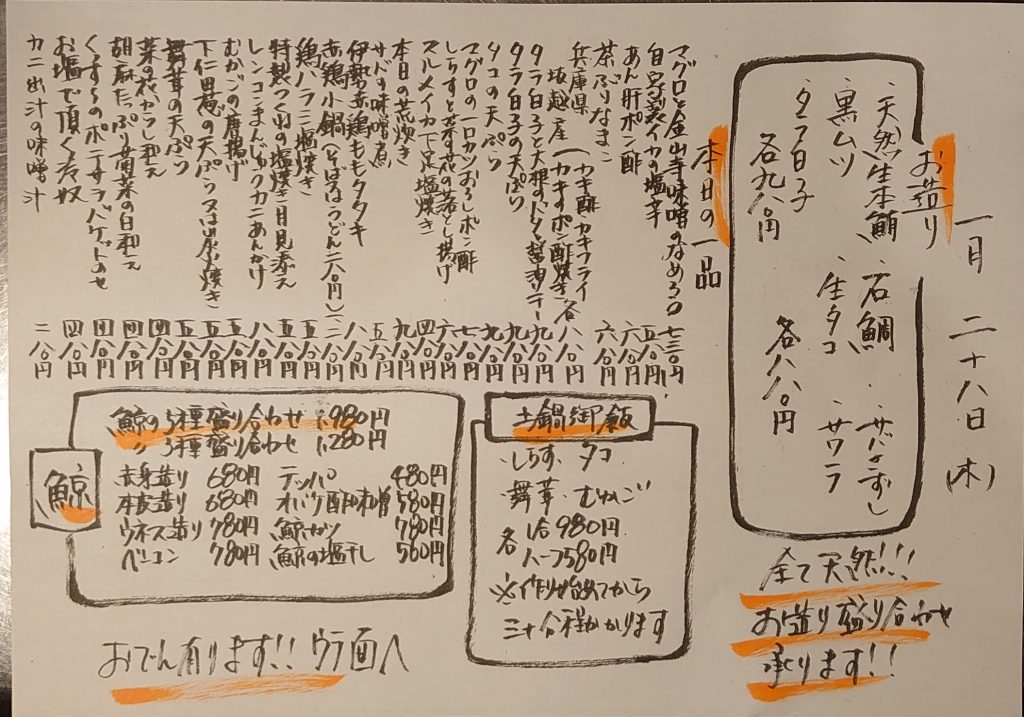 一月二十八日(木)
お造り
・天然生本鮪 ・石鯛 ・サバきずし
・黒ムツ ・生タコ ・サワラ
・タラ白子
各九八〇円 各八八〇円
全て天然!!!
お造り盛り合わせ
承ります!!
本日の一品
マグロと金山寺味噌のなめろう 七三〇円
自家製イカの塩辛 五八〇円
あん肝ポン酢 六八〇円
茶ぶりなまこ 六八〇円
兵庫県
坂越産(カキ酢・カキフライ
カキのポン酢焼き 各八八〇円
タラ白子と大根のバター醤油ソテー 九八〇円
タラ白子の天ぷら 九八〇円
タコの天ぷら 九八〇円
マグロの一口カツおろしポン酢 七八〇円
しらすと菜の花の落とし揚げ 六八〇円
スルメイカ下足塩焼き 四八〇円
本日の荒炊き 九八〇円
サバの味噌煮 五八〇円
伊勢赤鶏ももタタキ 八八〇円
赤鶏小鍋(そば又はうどん二八〇円)
鶏ハラミ塩焼き 五八〇円
特製つくねの塩焼き月見添え 五八〇円
レンコンまんじゅうカニあんかけ 八八〇円
むかごの唐揚げ 五八〇円
下仁田葱の天ぷら又は炭火焼き 五八〇円
舞茸の天ぷら 五八〇円
菜の花からし和え 四八〇円
胡麻たっぷり菊菜の白和え 四八〇円
くずし豆のポテサラバゲットのせ 四八〇円
お塩で頂く冷奴 四八〇円
カニ出汁の味噌汁 二八〇円
土鍋御飯
・しらす ・タコ
・舞茸 ・むかご
各 1合980円
ハーフ580円
※作り始めてから
三十分程かかります
鯨
鯨の5種盛り合わせ 1,980円
〃 3種盛り合わせ 1,280円
赤身造り 680円 テッパ 480円
本皮造り 680円 オバケ酢味噌 580円
ウネス造り 780円 鯨カツ 780円
ベーコン 780円 鯨の塩干し 560円
おでん有ります!! ウラ面へ